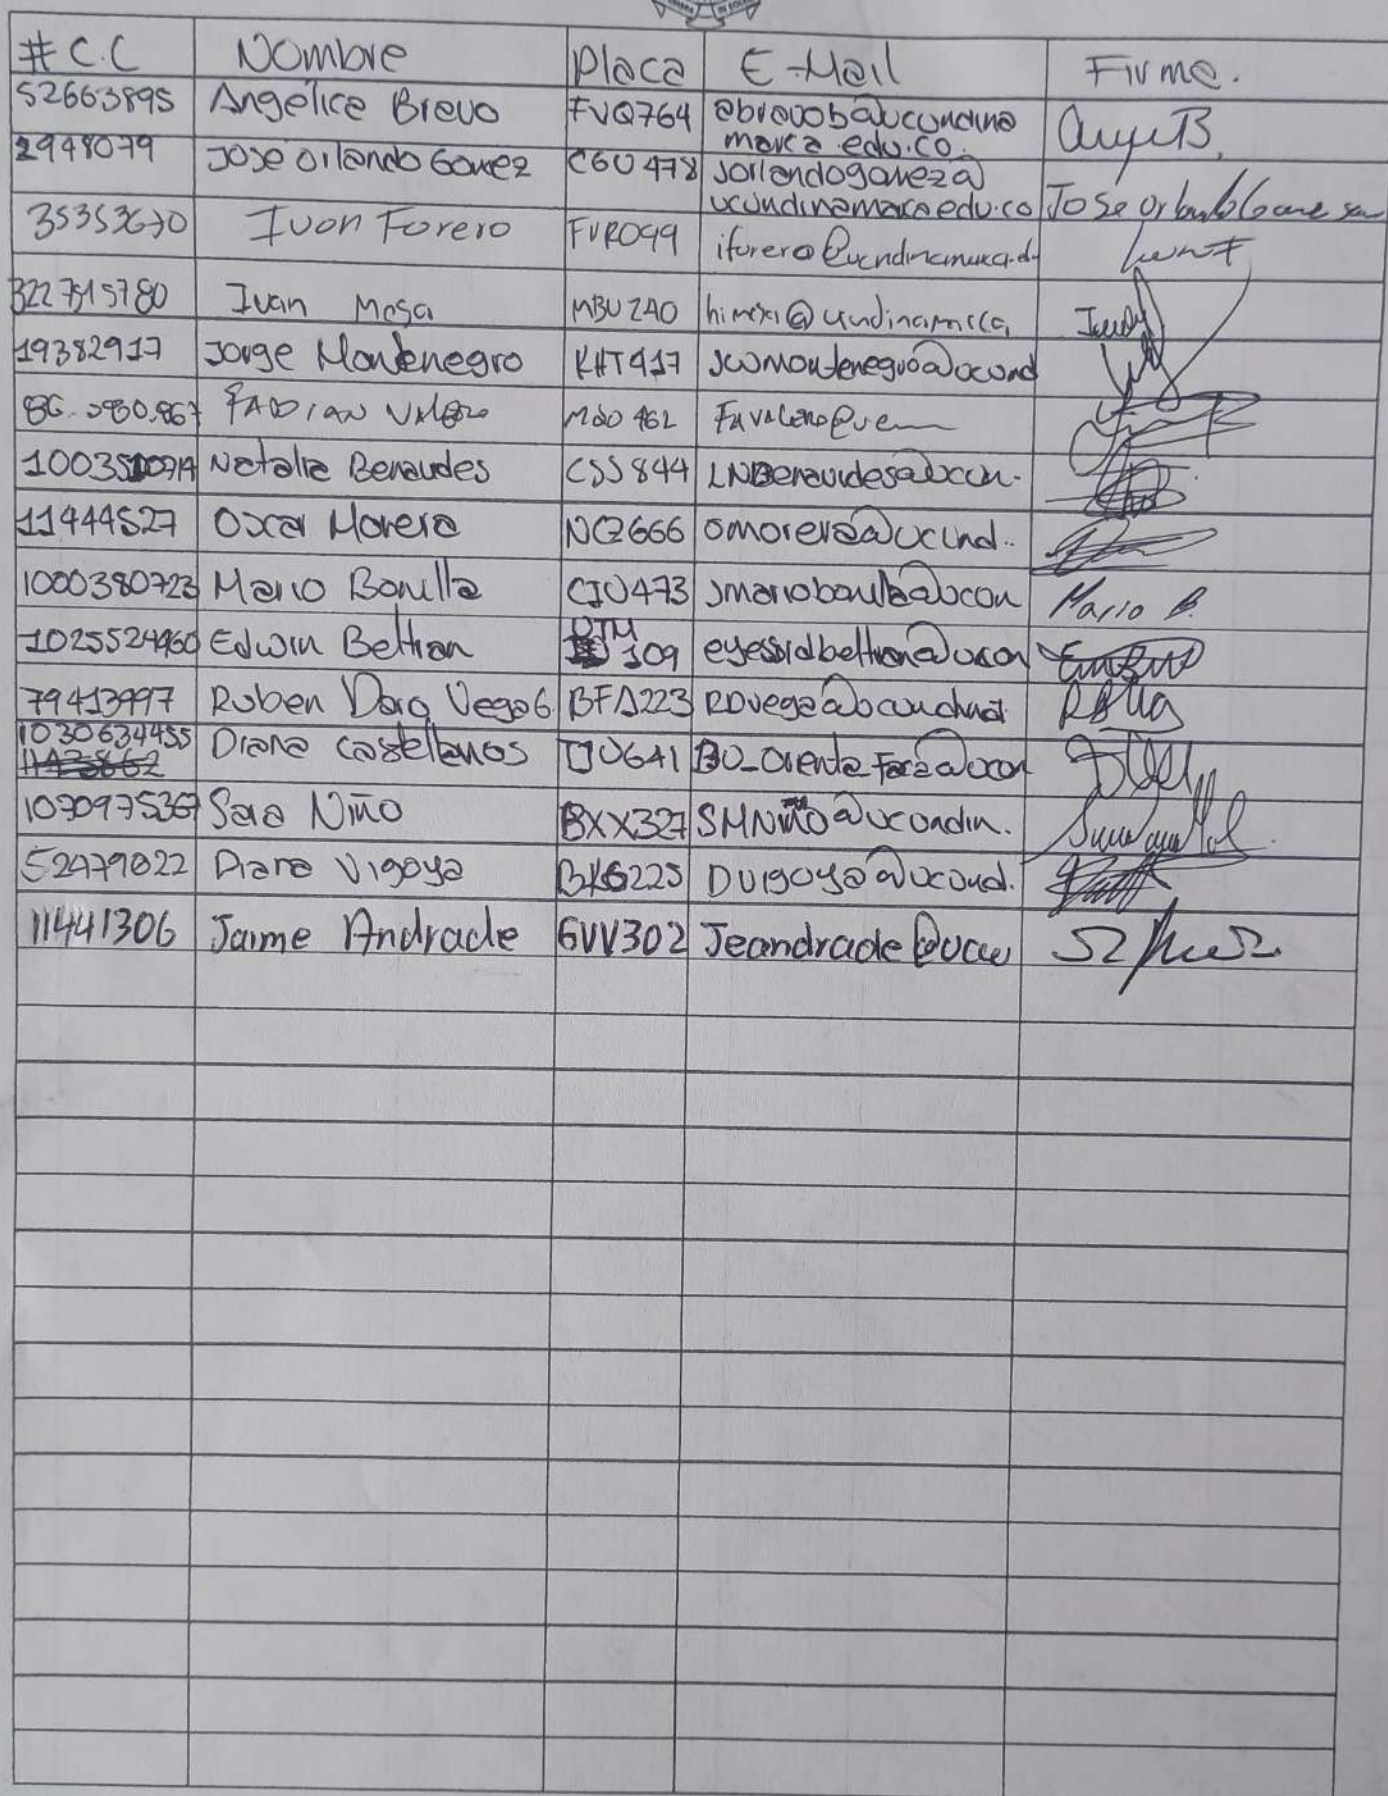 # C.C Nombre Placa E-Mail Firma.
52663895 Angelica Bravo FVQ764 abravob@ucundina
marca.edu.co.
2948079 Jose Orlando Gomez CGU478 Jorlandogomez@
ucundinamarca.edu.co
35353670 Ivon Forero FVR099 iforero@ucundinamarca.d
3227515780 Ivan Mesa MBU240
19382917 Jorge Montenegro KHT417 Jcwmontenegro@ucund
FABIAN VALERO
Natalia Benavides CSS844 LNBenavides@ucun.
11444527 Oscar Morera NCZ666 omorera@ucund..
1000380723 Mario Bonilla CJU473 Jmariobonilla@ucun Mario B.
Edwin Beltran UTM
109 eyessidbeltran@ucun
79413997 Ruben Dario Vega G. BFA223 RDvega@ucundinat
1030634455
Diana Castellanos BU_Oriente_Faca@ucun
1070975367 Sara Niño BXX327 SMNiño@ucundin.
52479022 Diana Vigoya BKG225 DVigoya@ucund.
11441306 Jaime Andrade GVV302 Jeandrade@ucu